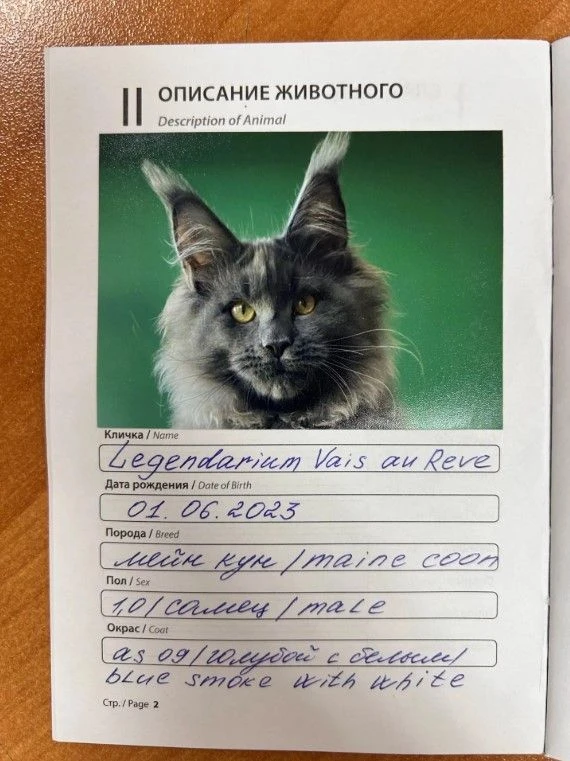 II ОПИСАНИЕ ЖИВОТНОГО
Description of Animal
Кличка / Name
Legendarium Vais au Reve
Дата рождения / Date of Birth
01. 06. 2023
Порода / Breed
мейн кун / maine coon
Пол / Sex
1,0 / самец / male
Окрас / Coat
as 09 / голубой с белым /
blue smoke with white
Стр. / Page 2